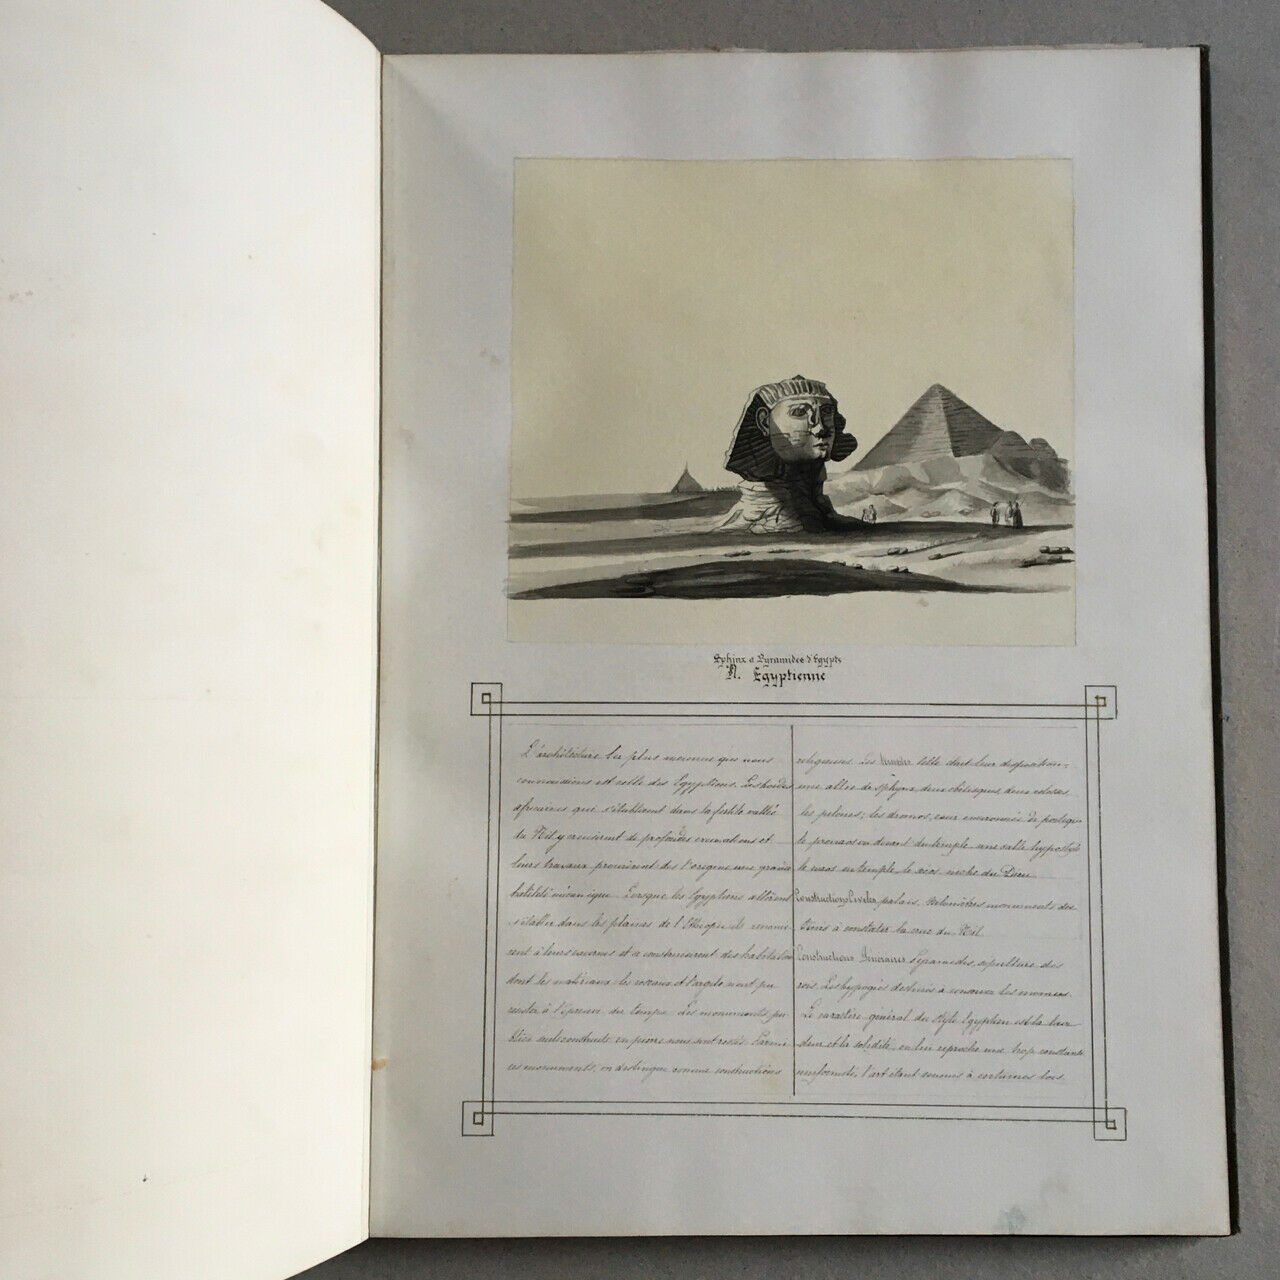 Sphinx et Pyramides d'Egypte
A. Egyptienne
L'architecture les plus que nous
connaissions est celle des Egyptiens. Les hordes
africaines qui s'établirent dans la fertile vallée
du Nil y creusèrent de profondes excavations et
leurs travaux prouvèrent dès l'origine une grande
habileté mécanique. Lorsque les Egyptiens allèrent
s'établir dans les plaines de l'Ethiopie ils renon-
cèrent à leurs cavernes et construisirent des habitations
dont les matériaux, les roseaux et l'argile n'ont pu
résister à l'épreuve du temps. Les monuments pu-
blics seuls construits en pierre nous sont restés. Parmi
ces monuments, on distingue comme constructions
religieuses. Les Temples telle était leur disposition:
une allée de sphynx, deux obélisques, deux colosses
les pylones; les dromos, cour environnée de portiques
le pronaos ou devant du temple, une salle hypostyle
le naos ou temple, le sécos niche du Dieu.
Constructions Civiles, palais. Nilomètres monuments des-
tinés à constater la crue du Nil.
Constructions funéraires. Pyramides, sépulture des
rois. Les hypogées destinés à conserver les momies.
Le caractère général du style Egyptien est la lour-
deur et la solidité, on lui reproche une trop constante
uniformité, l'art étant soumis à certaines lois.